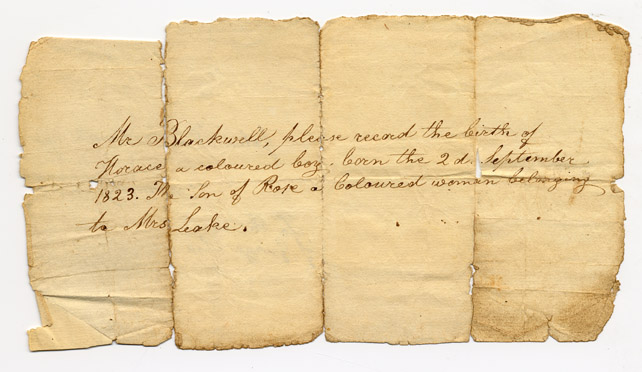 Mr Blackwell, please record the birth of
Horace a coloured boy. born the 2d. September
1823. The Son of Rose a Coloured woman belonging
to Mrs Leake.